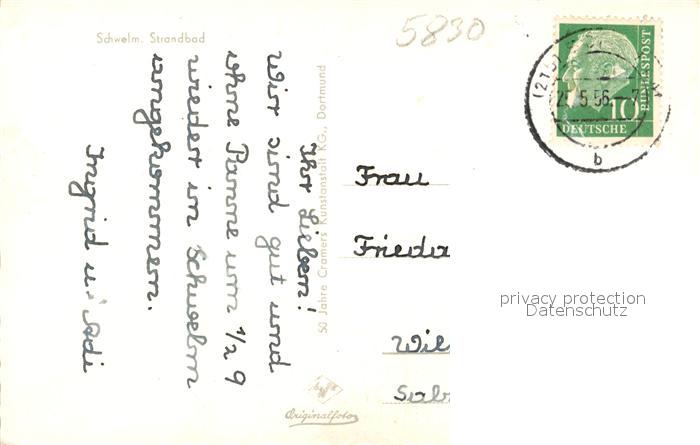 Schwelm. Strandbad
5830
Ihr Lieben!
Wir sind gut und
ohne Panne um 1/2 9
wieder in Schwelm
angekommen.
Ingrid u. Adi
50 Jahre Cramers Kunstanstalt KG., Dortmund
Frau
Frieda
Wil
Originalfoto
10
DEUTSCHE
BUNDESPOST
5.56.
b
privacy protection
Datenschutz